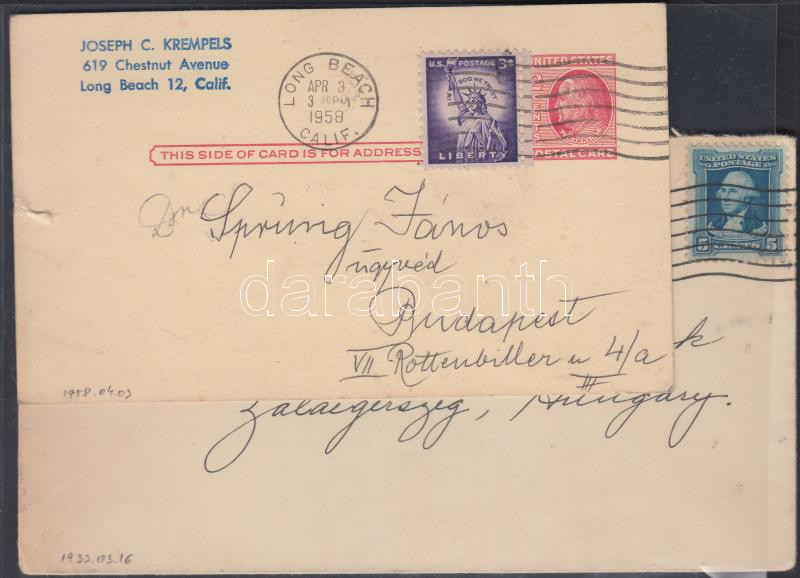 JOSEPH C. KREMPELS
619 Chestnut Avenue
Long Beach 12, Calif.
LONG BEACH
APR 3
3 30 PM
1958
CALIF.
U.S. POSTAGE 3¢
IN GOD WE TRUST
LIBERTY
UNITED STATES
2 CENTS
POSTAL CARD
THIS SIDE OF CARD IS FOR ADDRESS
UNITED STATES
POSTAGE
5 CENTS 5
Dr Sprüng János
ügyvéd
darabanth
Budapest
VII Rottenbiller u 4/a
III
k
1958.04.03
Zalaegerszeg, Hungary.
1932.03.16